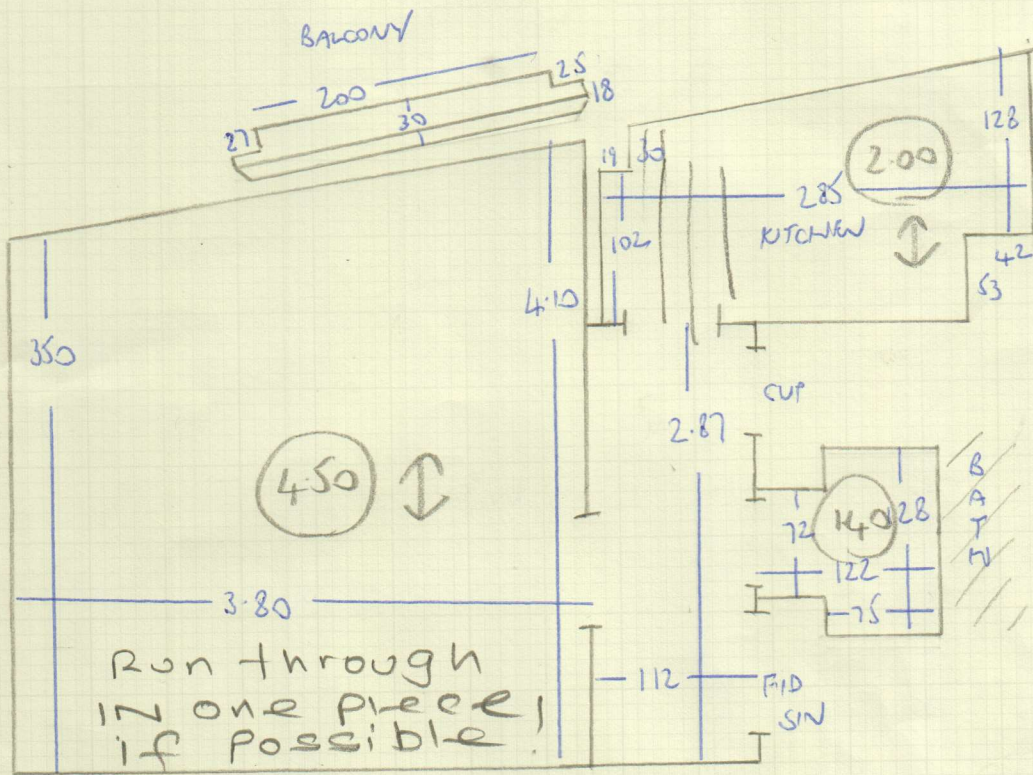 BALCONY
200
25
18
30
27
19
30
128
2.00
285
KITCHEN
102
42
53
4.10
350
CUP
2.87
4.50
72
140
128
122
75
BATH
3.80
Run through
IN one piece,
if possible!
112
SIN